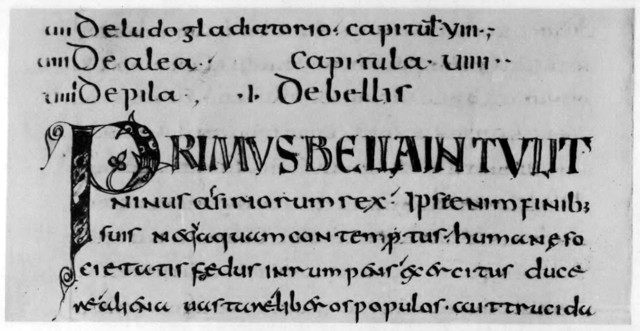 De ludo gladiatorio · capitul · VIII ·;
De alea · Capitula · VIIII ··
De pila , · I · De bellis
PRIMVS BELLA INTVLIT
NINUS asiriorum rex · Ipse enim finib;
suis neq;aquam contemptus · humane so
cietatis fedus inrumpens exercitus duce
re aliena uastare liberos populos · aut trucida